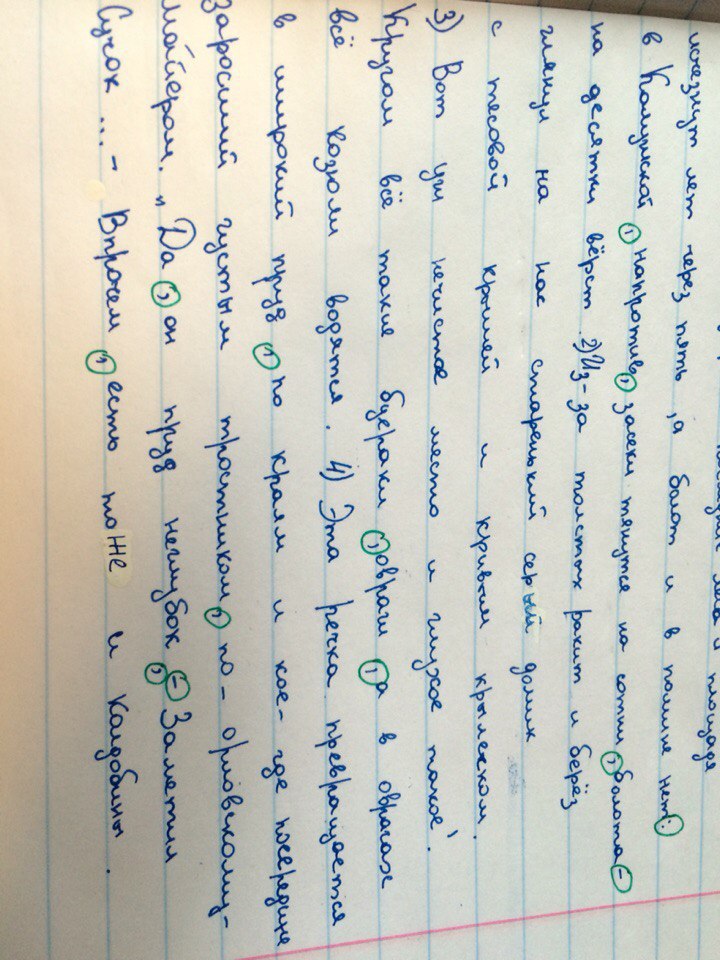 леса и площадя
исчезнут лет через пять, а болот и в помине нет;
в Калужской, напротив, засеки тянутся на сотни, болота –
на десятки вёрст. 2) Из-за толстых ракит и берёз
глянул на нас старенький серый домик
с тесовой крышей и кривым крылечком.
3) Вот уж нечистое место и глухое такое!
Кругом всё такие буераки, овраги, а в оврагах
всё козюли водятся. 4) Эта речка превращается
в широкий пруд, по краям и кое-где посередине
заросший густым тростником, по-орловскому –
майером. „Да, он пруд неглубок, – Заметил
Сучок ... – Впрочем, есть тоже и колдобины.